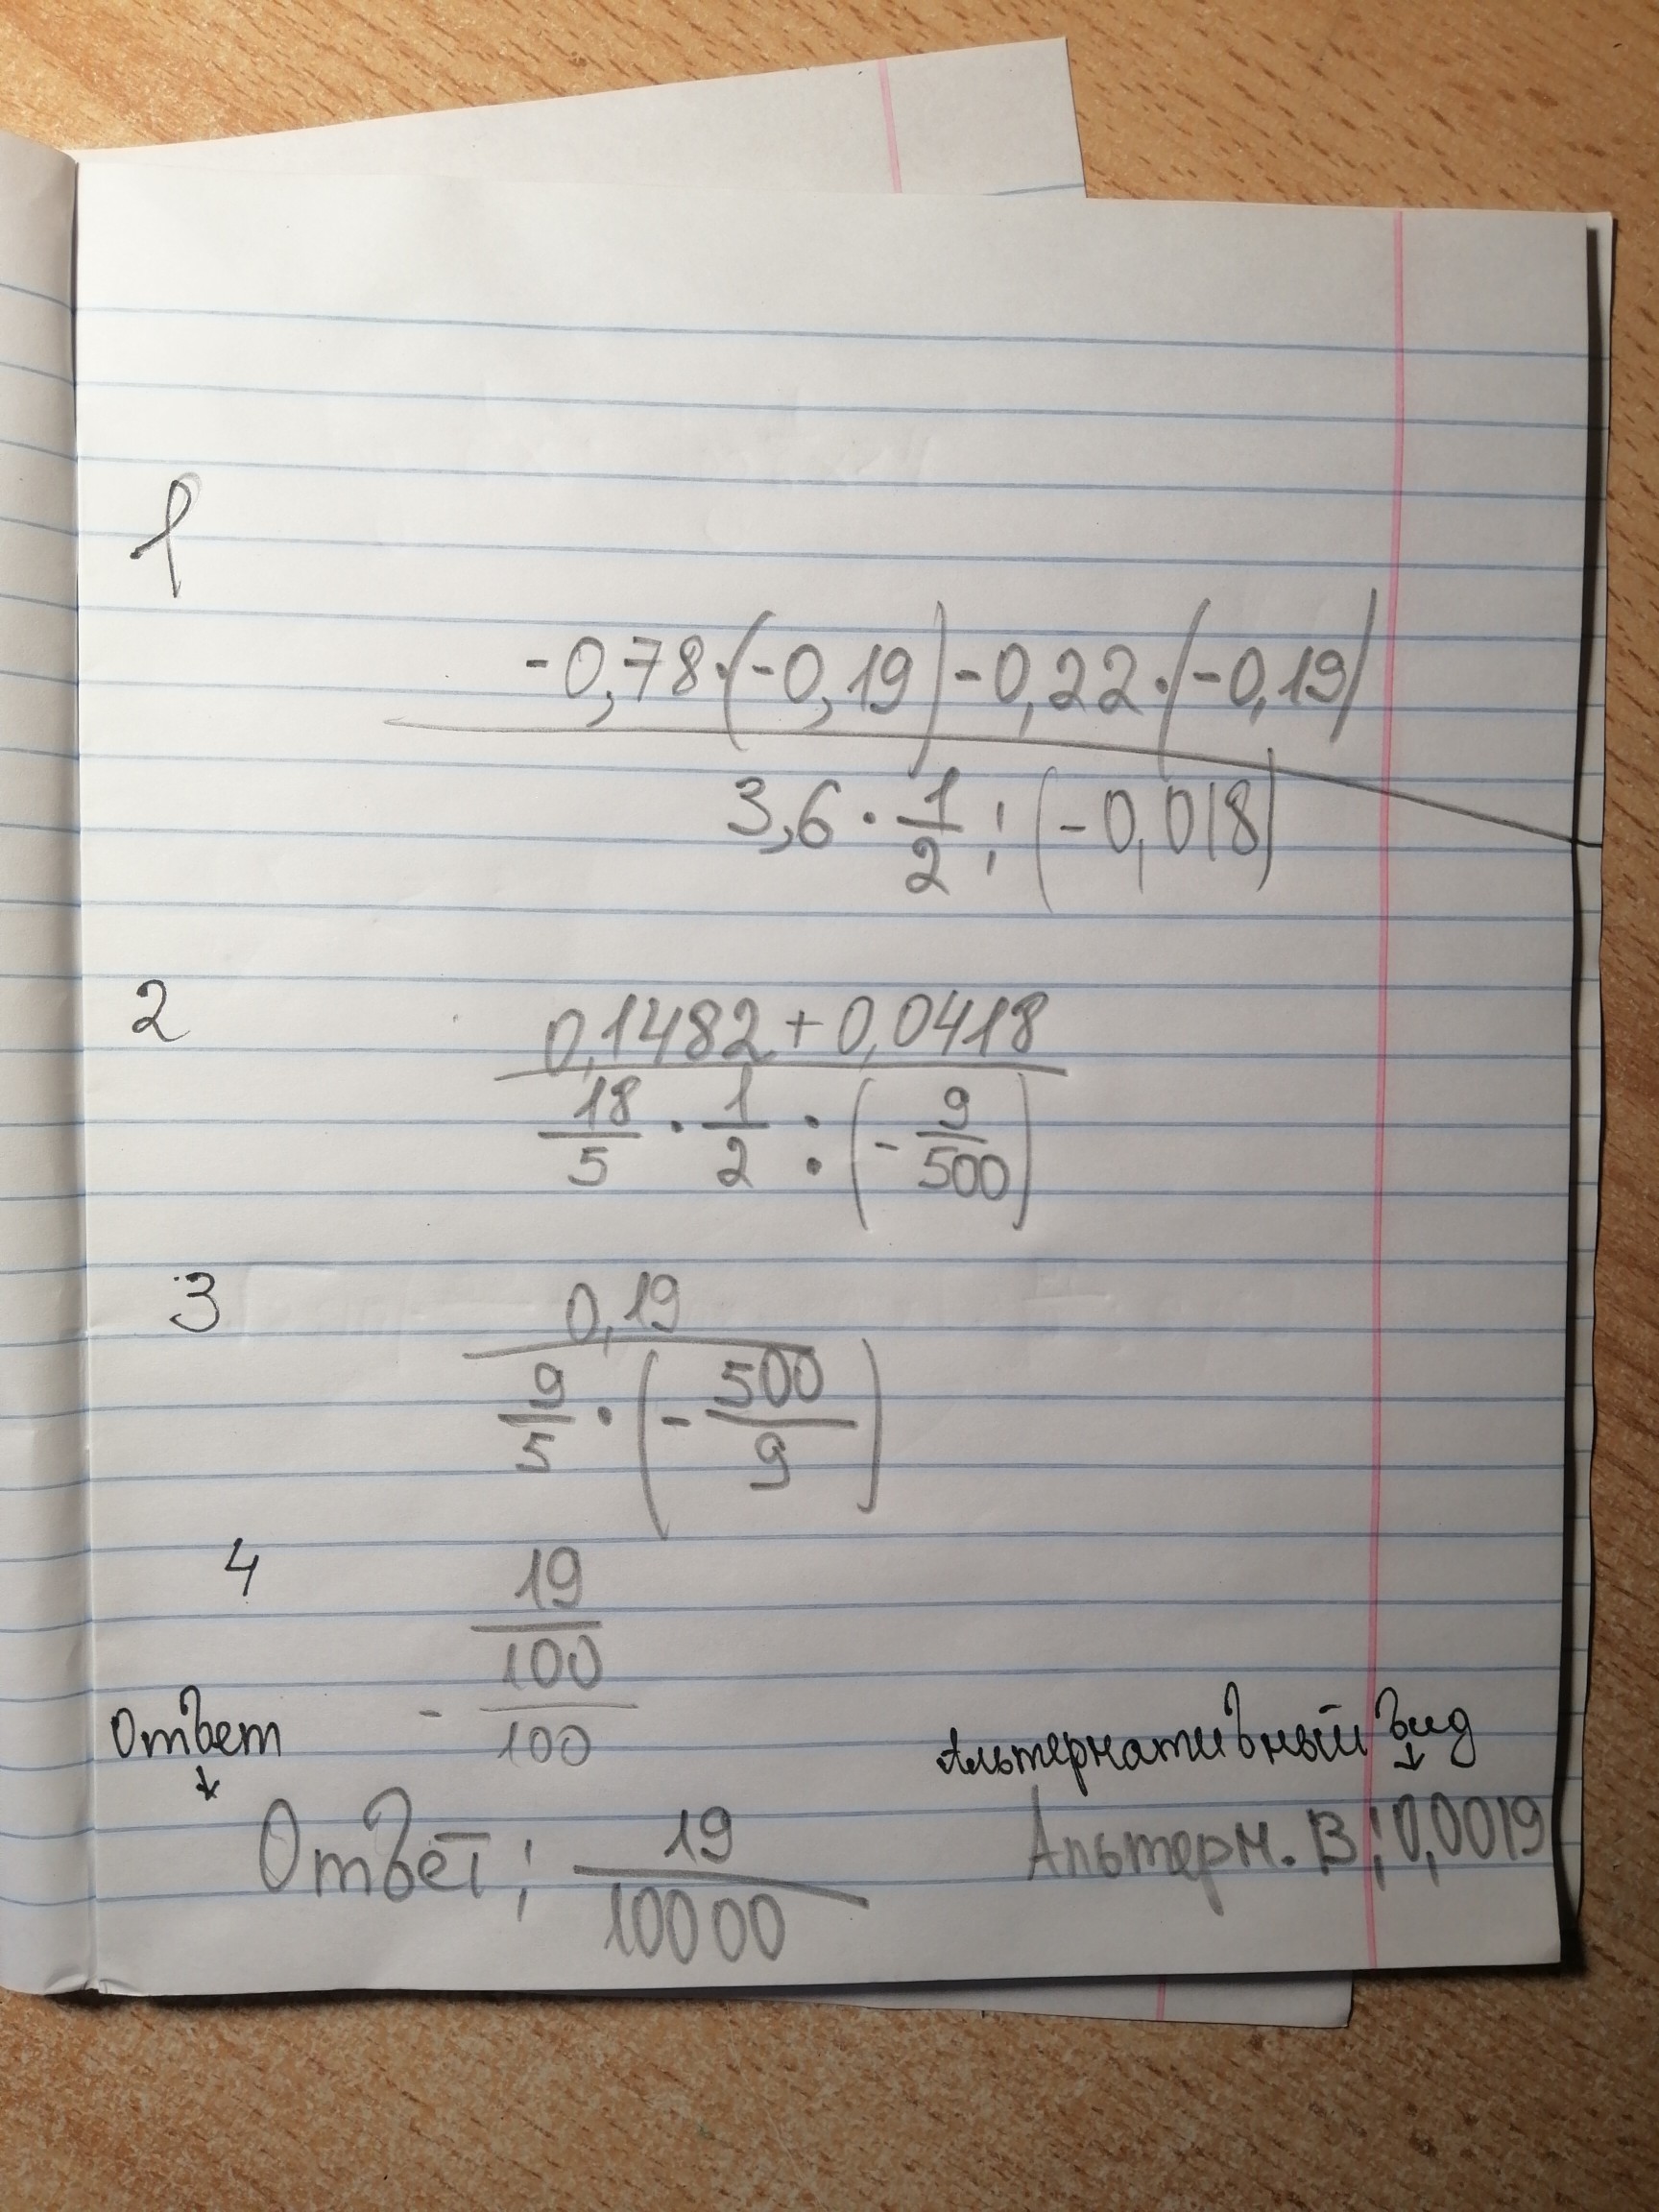 1
-0,78·(-0,19)-0,22·(-0,19)
3,6·1/2:(-0,018)
2
0,1482+0,0418
18/5·1/2:(-9/500)
3
0,19
9/5·(-500/9)
4
19
100
- 100
Ответ
Альтернативный вид
Ответ: 19/10000
Альтерн. В: 0,0019